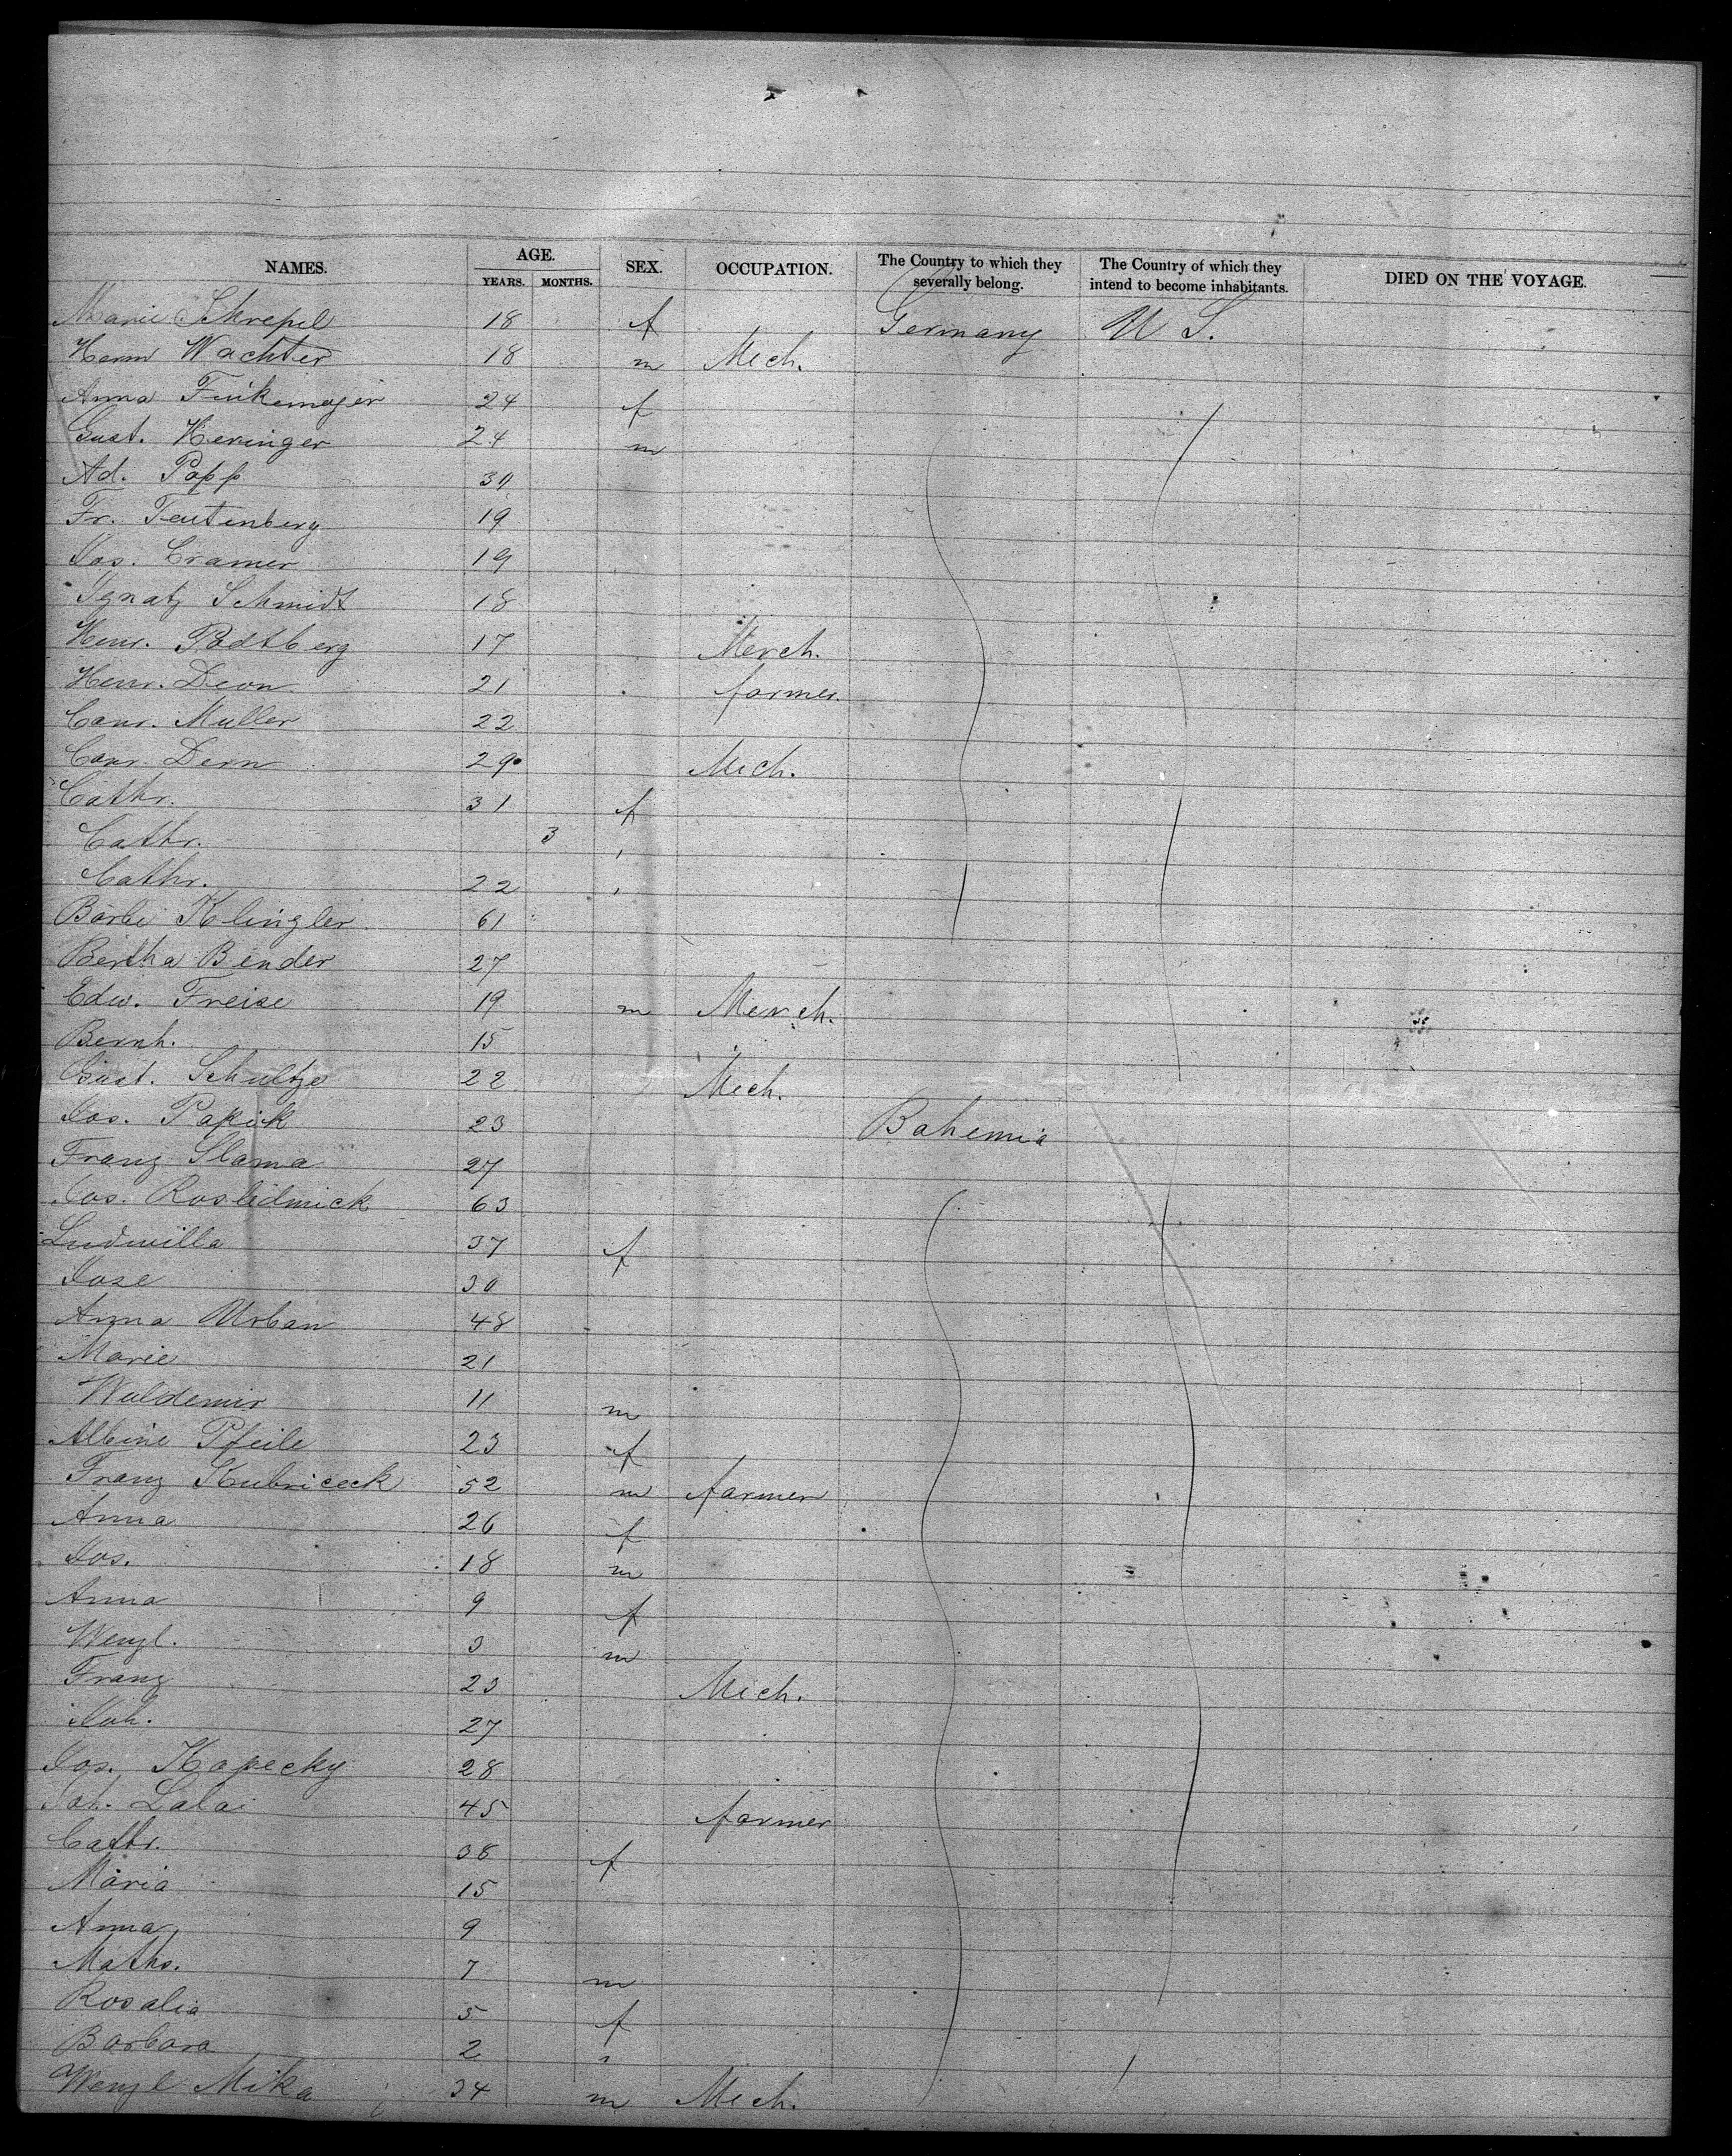 NAMES. AGE. SEX. OCCUPATION. The Country to which they severally belong. The Country of which they intend to become inhabitants. DIED ON THE VOYAGE.
YEARS. MONTHS.
Marie Schrepel 18 f Germany U S.
Herm Wachter 18 m Mech.
Anna Finkemajer 24 f
Gust. Heringer 24 m
Ad. Popp 30
Fr. Teutenberg 19
Jos. Cramer 19
Ignatz Schmidt 18
Henr. Padtberg 17 Merch.
Henr. Deon 21 farmer.
Conr. Muller 22
Conr. Dern 29 Mech.
Cathr. 31 f
Cathr. 3 "
Cathr. 22 "
Barbe Klingler 61
Bertha Binder 27
Edw. Freise 19 m Merch.
Bernh. 15
Gust. Schultze 22 Mech.
Jos. Papick 23 Bahemia
Franz Slama 27
Jos. 63
Ludmilla 37 f
Jose 30
Anna Urban 48
Marie 21
Waldemir 11 m
Albine Pfeile 23 f
Franz Kubriceck 52 m farmer
Anna 26 f
Jos. 18 m
Anna 9 f
Wenzl. 3 m
Franz 23 Mech.
Joh. 27
Jos. Kopecky 28
Joh. Lalai 45 farmer
Cathr. 38 f
Maria 15
Anna 9
Maths. 7 m
Rosalia 5 f
Barbara 2 "
Wenzl Mika 34 m Mech.